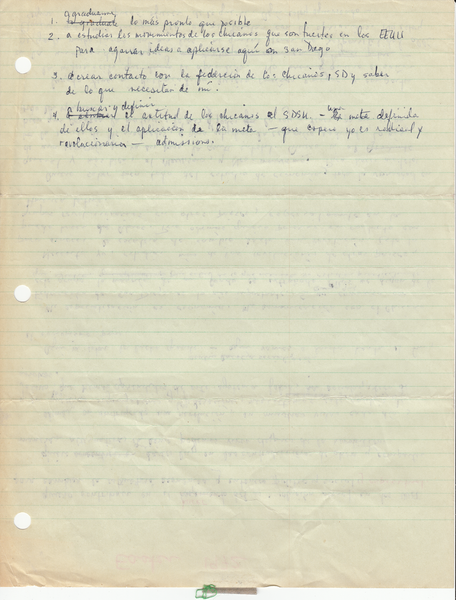 a graduarme
1. lo más pronto que posible
2. a estudiar los movimientos de los chicanos que son fuertes en los EEUU
para agarrar ideas a aplicarse aquí en San Diego
3. a crear contacto con la federación de los chicanos, SD y saber
de lo que necesitan de mí.
a buscar y definir
4. el entitad de los chicanos al SDSU. – una meta definida
de ellos y el aplicación de la meta – que espero yo es radical y
revolucionario – admissions.